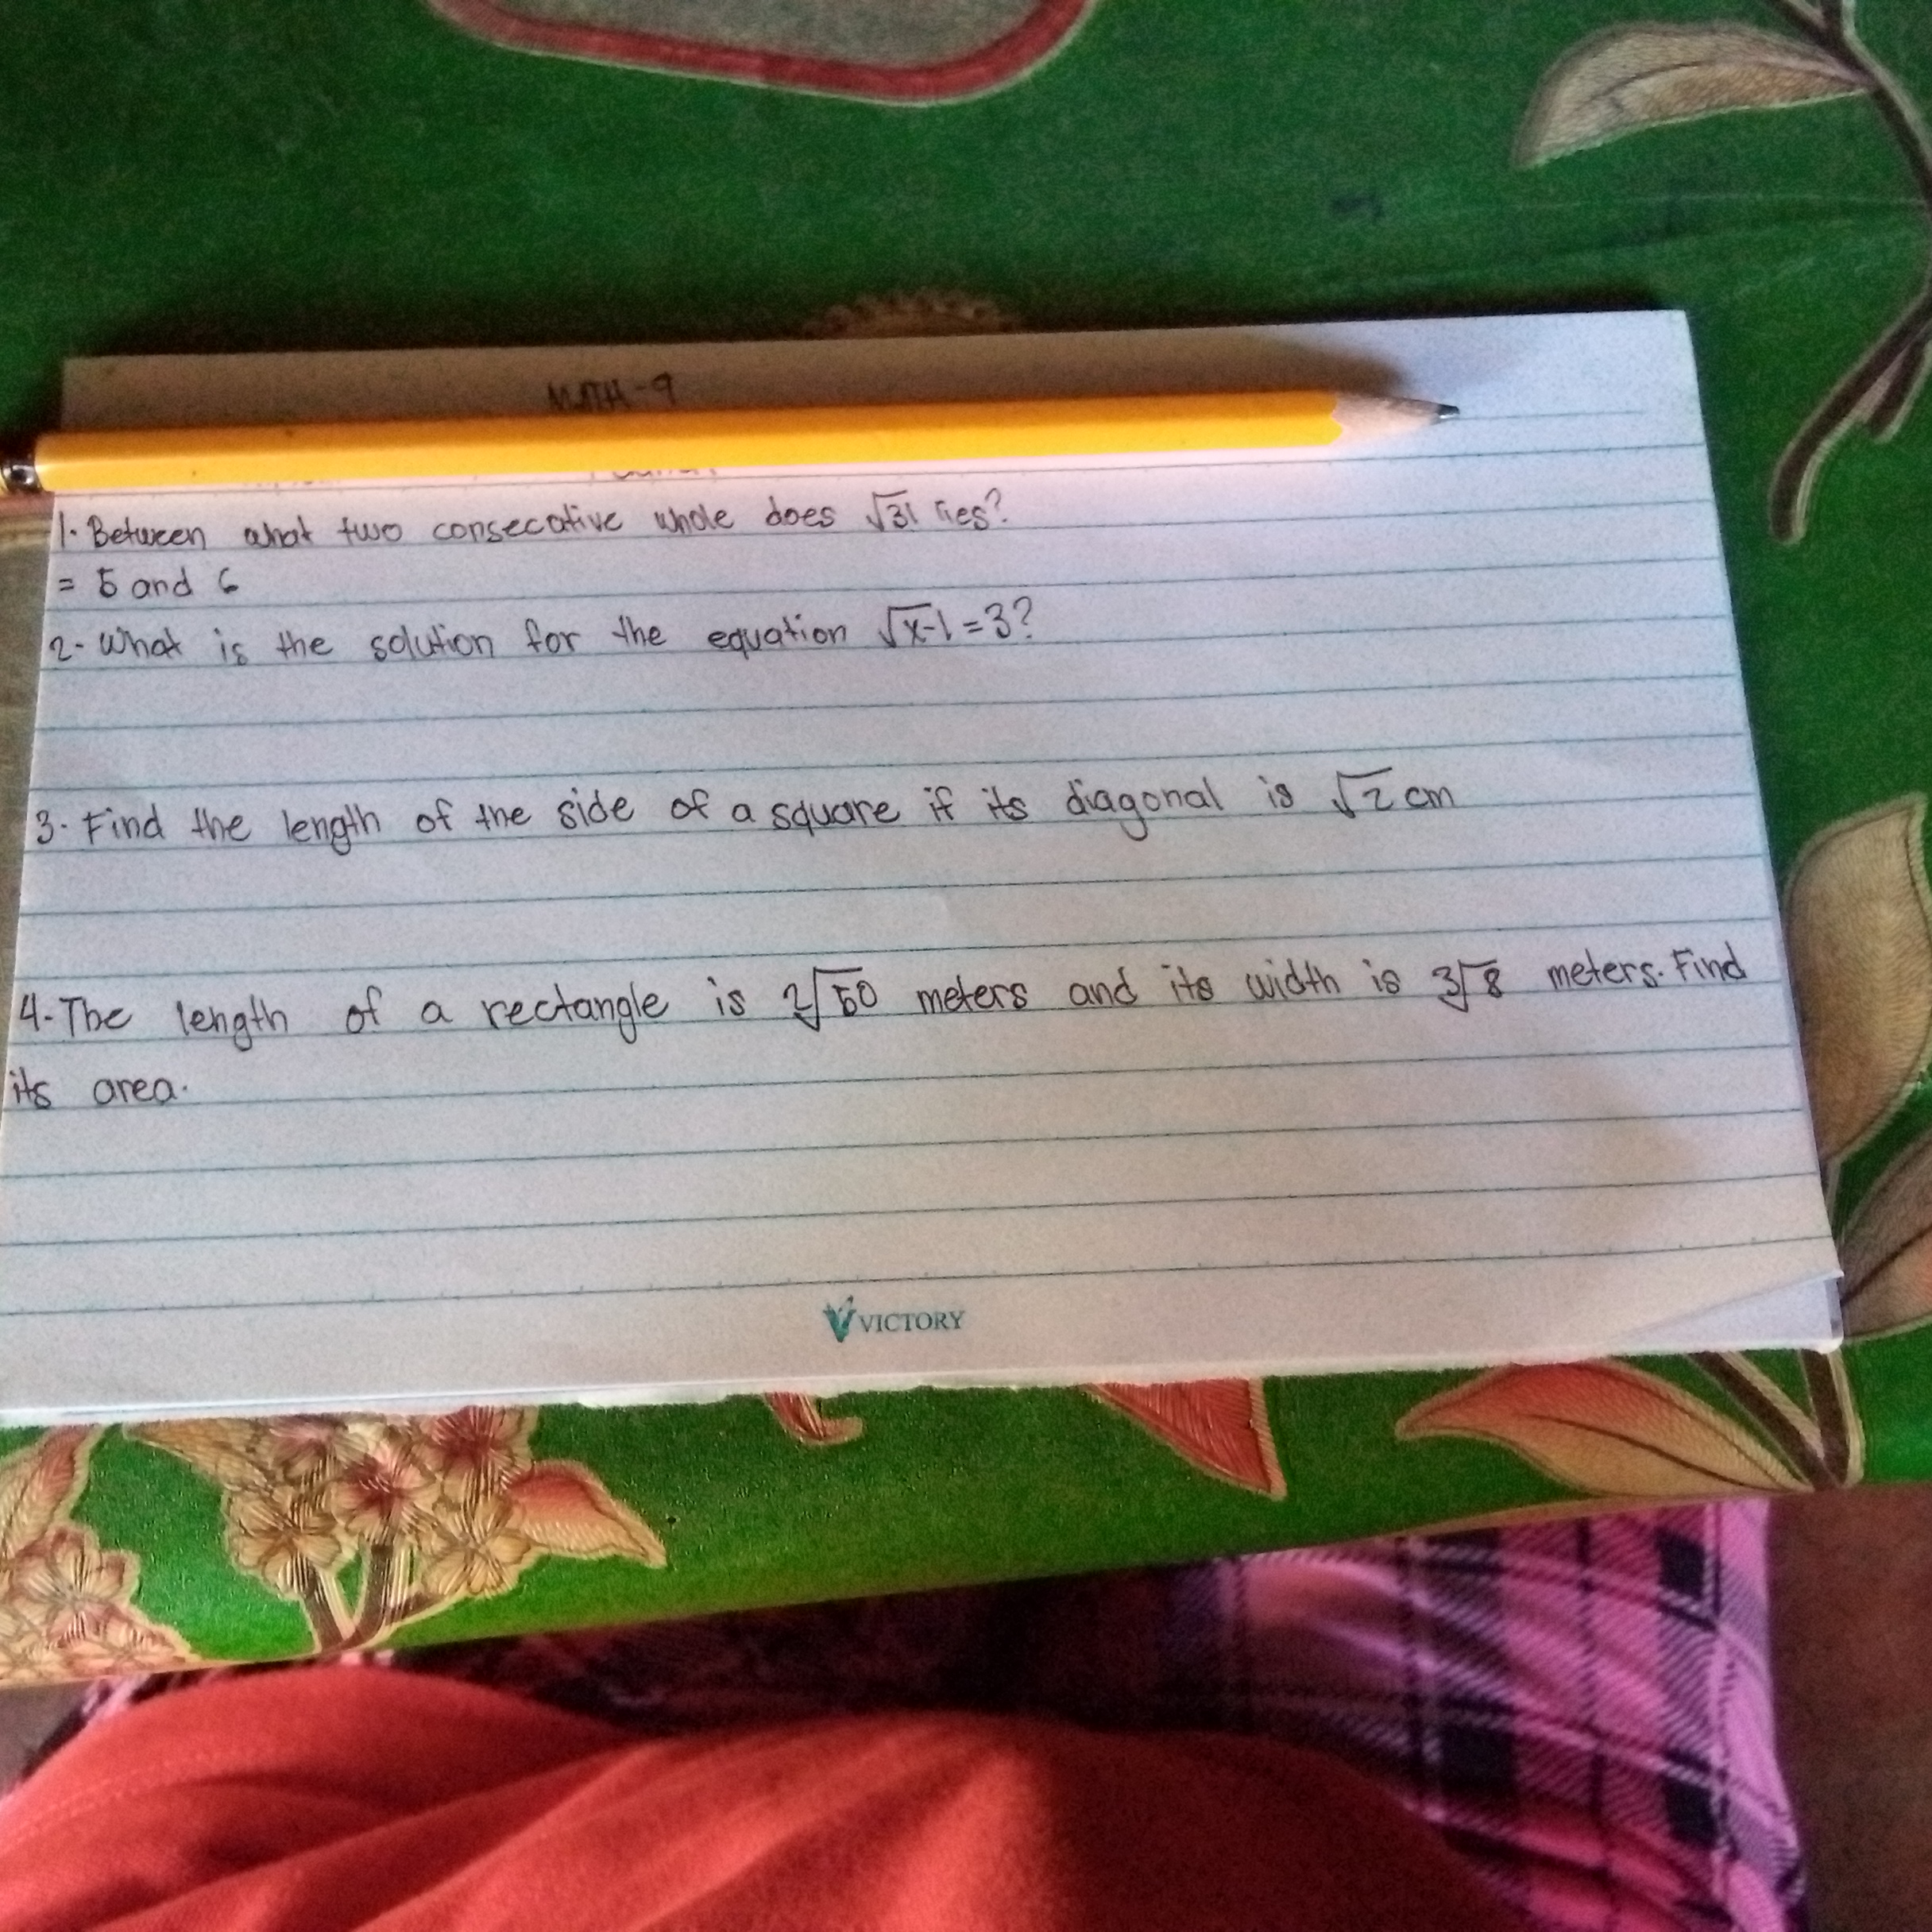 MATH-9
1. Between what two consecative whole does √31 lies?
= 5 and 6
2- What is the solution for the equation √x-1 = 3?
3. Find the length of the side of a square if its diagonal is √2 cm
4- The length of a rectangle is 2√50 meters and its width is 3√8 meters. Find
its area.
VICTORY